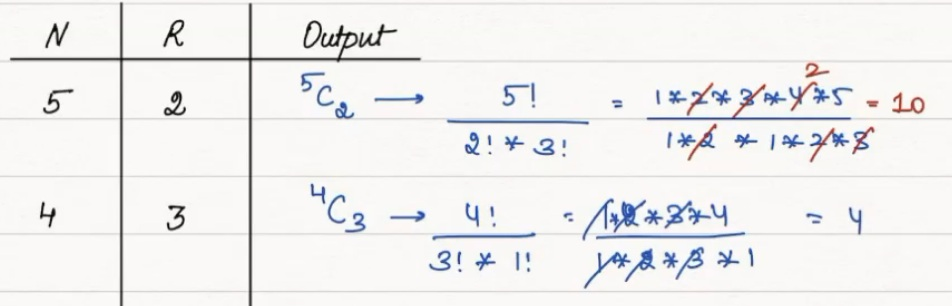 N R Output
5 2 ⁵C₂ → 5! / 2! * 3! = 1 * 2 * 3 * 4 * 5 / 1 * 2 * 1 * 2 * 3 = 10
2
4 3 ⁴C₃ → 4! / 3! * 1! = 1 * 2 * 3 * 4 / 1 * 2 * 3 * 1 = 4